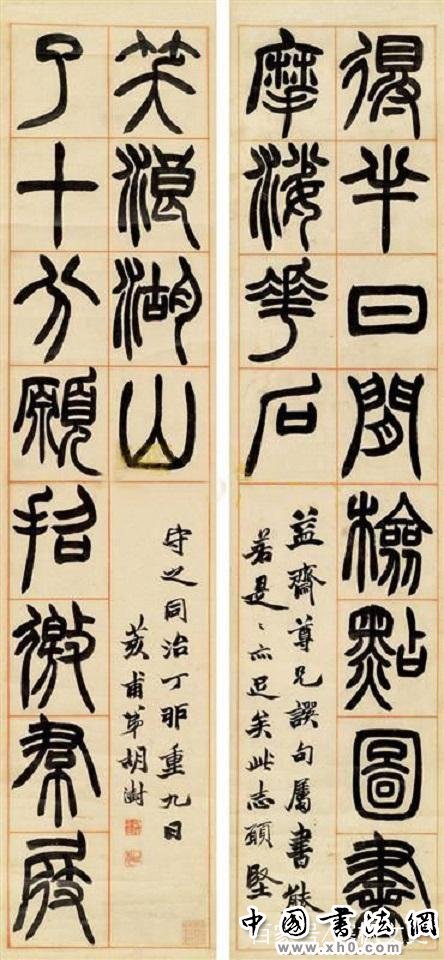 得半日閒檢點圖書
摩挲花石
益齋尊兄譔句屬書能
若是〻亦足矣此志願堅
笑浪湖山
了十分願招徼帬屐
守之同治丁卯重九日
荄甫弟胡澍
中国書法網
www.xh0.com